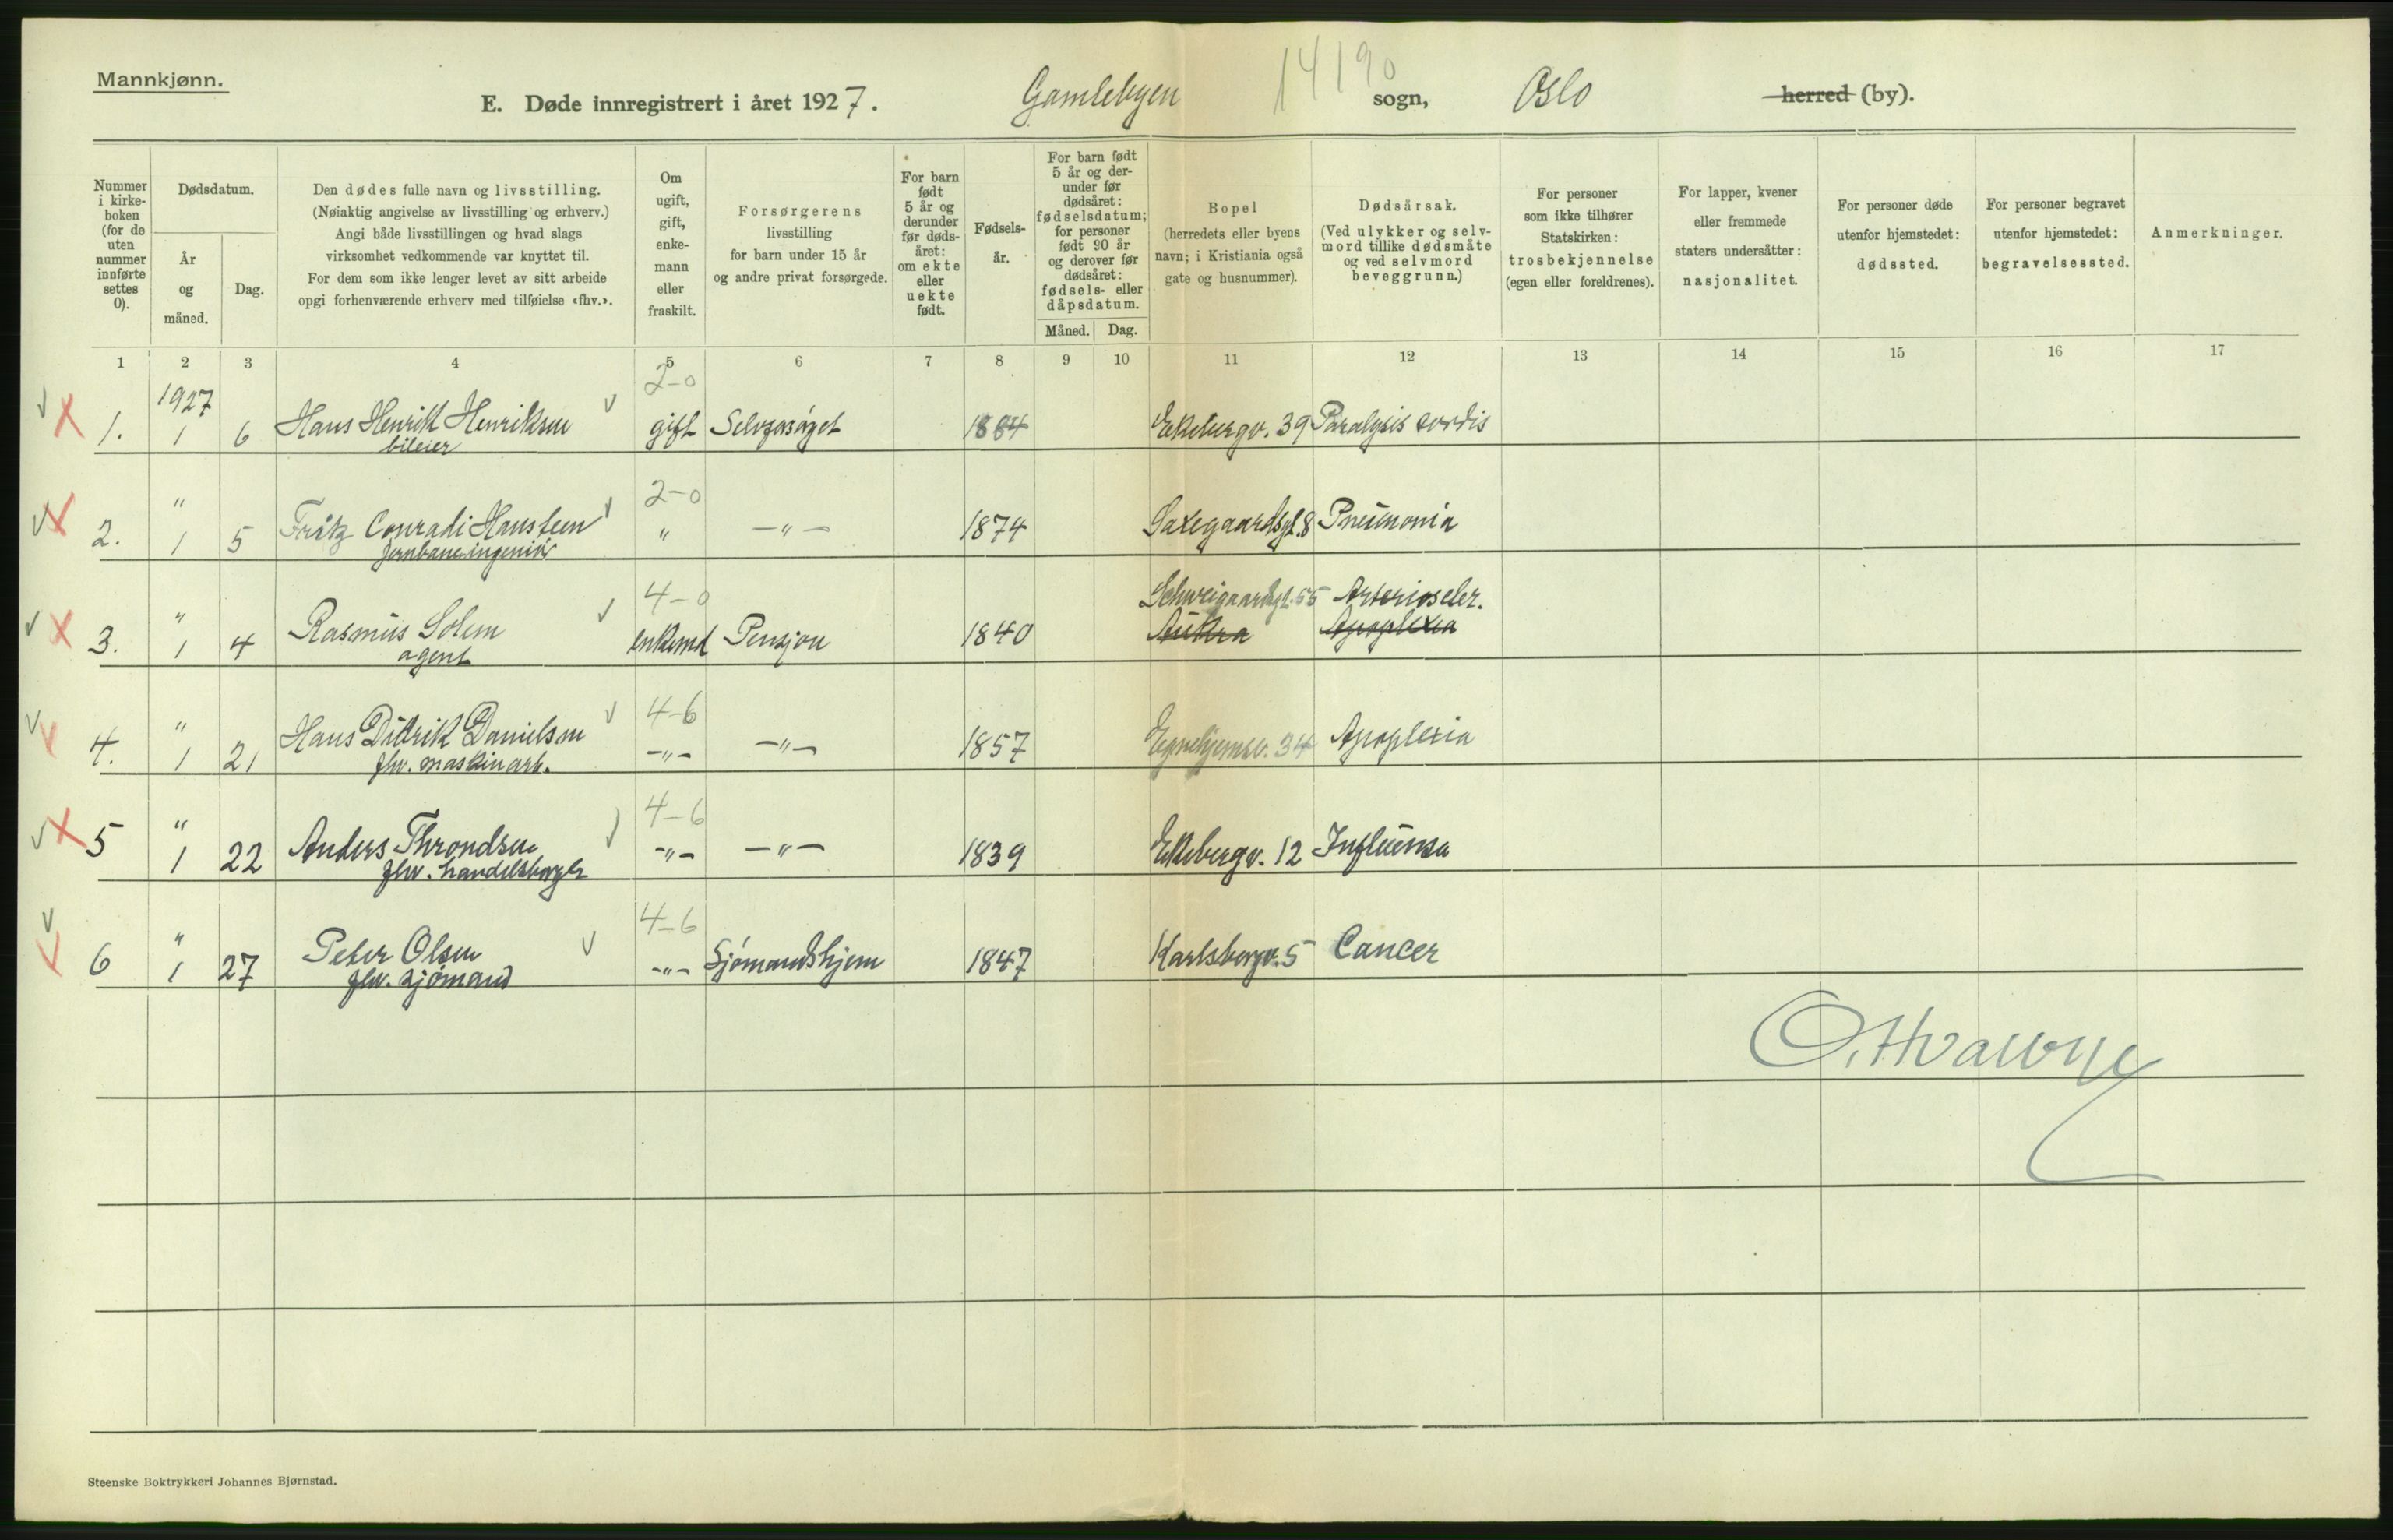 Mannkjønn.
E. Døde innregistrert i året 1927. Gamlebyen sogn, Oslo herred (by).
14190
Nummer i kirke-boken (for de uten nummer innførte settes 0).
Dødsdatum.
År og måned.
Dag.
Den dødes fulle navn og livsstilling.
(Nøiaktig angivelse av livsstilling og erhverv.)
Angi både livsstillingen og hvad slags
virksomhet vedkommende var knyttet til.
For dem som ikke lenger levet av sitt arbeide
opgi forhenværende erhverv med tilføielse «fhv.».
Om ugift, gift, enke-mann eller fraskilt.
Forsørgerens livsstilling
for barn under 15 år
og andre privat forsørgede.
For barn født 5 år og derunder før døds-året: om ekte eller uekte født.
Fødsels-år.
For barn født 5 år og der-under før dødsåret: fødselsdatum; for personer født 90 år og derover før dødsåret: fødsels- eller dåpsdatum.
Måned. Dag.
Bopel
(herredets eller byens
navn; i Kristiania også
gate og husnummer).
Dødsårsak.
(Ved ulykker og selv-
mord tillike dødsmåte
og ved selvmord
beveggrunn.)
For personer
som ikke tilhører
Statskirken:
trosbekjennelse
(egen eller foreldrenes).
For lapper, kvener
eller fremmede
staters undersåtter:
nasjonalitet.
For personer døde
utenfor hjemstedet:
dødssted.
For personer begravet
utenfor hjemstedet:
begravelsessted.
Anmerkninger.
1 2 3 4 5 6 7 8 9 10 11 12 13 14 15 16 17
1927 2-0
1. 1 6 Hans Henrik Henriksen gift Selvforsørget 1884 Ekebergv. 39 Paralysis cordis
bileier
" 2-0
2. 1 5 Fritz Conradi Hansteen " -"- 1874 Saxegaardsgt. 8 Pneumonia
jernbaneingeniør
" 4-0 Schweigaardsgt. 55 Arterioscler.
3. 1 4 Rasmus Solem enkemd Pensjon 1840 Aukra Apoplexia
agent
" 4-6
4. 1 21 Hans Didrik Danielsen -"- -"- 1857 Egnehjemsv. 34 Apoplexia
fhv. maskinarb.
" 4-6
5 1 22 Anders Throndsen -"- -"- 1839 Ekebergv. 12 Influensa
fhv. handelsborger
" 4-6
6 1 27 Peter Olsen -"- Sjømandshjem 1847 Karlsborgv. 5 Cancer
fhv. sjømand
Steenske Boktrykkeri Johannes Bjørnstad.